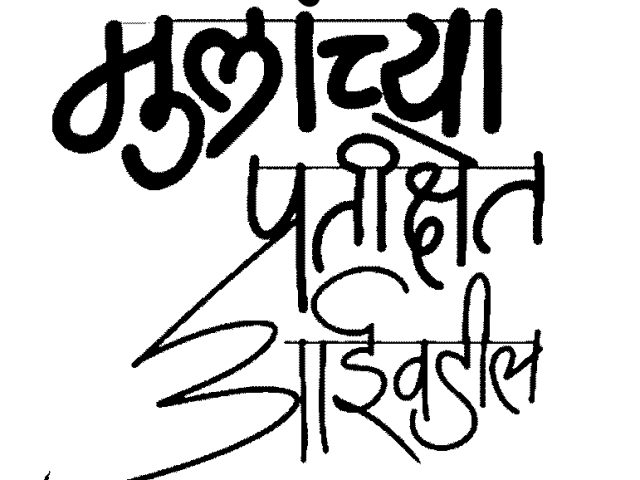 मुलांच्या
प्रतीक्षेत
आईवडील